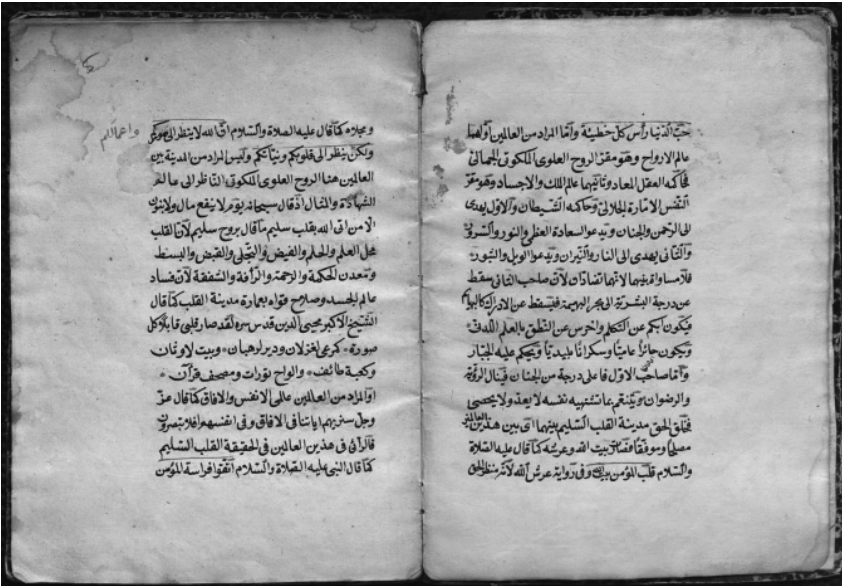 حب الدنيا رأس كل خطيئة وأما المراد من العالمين أولهما
عالم الارواح وهو مقر الروح العلوى الملكوتى الجمالى
فحاكمه العقل المعاد وثانيهما عالم الملك والاجساد وهو مقر
النفس الامارة الجلالى وحاكمه الشيطان والاول يهدى
الى الرحمن والجنان ويدعو السعادة العظمى والنور والسرور
والثانى يهدى الى النار والنيران ويدعو الويل والثبور
فلا مساواة بينهما لانهما تضادان لان صاحب الثانى سقط
عن درجة البشرية الى بحر البهيمة فيسقط عن الادراك كالبهائم
فيكون ابكم عن التكلم واخرس عن النطق بالعلم اللدنى
ويكون حائرا عاميا وسكرانا بليديا ويحكم عليه الجبار
وأما صاحب الاول فاعلى درجة من الجنان فينال الرؤية
والرضوان ويتنعم بما تشتهيه نفسه لا يعد ولا يحصى
فخلق الحق مدينة القلب السليم بينهما اى بين هذين العالمين
مصلحا وموفقا فصار بيت الله وعرشه كما قال عليه الصلاة
والسلام قلب المؤمن بيت الله وفى رواية عرش الله لانه منظر الحق
ومجلاه كما قال عليه الصلاة والسلام ان الله لا ينظر الى صوركم
واعمالكم
ولكن ينظر الى قلوبكم ونياتكم وليس المراد من المدينة بين
العالمين هنا الروح العلوى الملكوتى الناظر الى عالم
الشهادة والمثال اذ قال سبحانه يوم لا ينفع مال ولا بنون
الا من اتى الله بقلب سليم ما قال بروح سليم لان القلب
محل العلم والحلم والفيض والتجلى والقبض والبسط
ومعدن الحكمة والرحمة والرأفة والشفقة لان فساد
عالم الجسد وصلاح قواه بعمارة مدينة القلب كما قال
الشيخ الاكبر محيى الدين قدس سره لقد صار قلبى قابلا كل
صورة * كرعى لغزلان ودير لرهبان * وبيت لاوثان
وكعبة طائف * والواح تورات ومصحف قرآن *
او المراد من العالمين عالمى الانفس والافاق كما قال عز
وجل سنريهم اياتنا فى الافاق وفى انفسهم افلا تبصرون
فالرائى فى هذين العالمين فى الحقيقة القلب السليم
كما قال النبى عليه الصلاة والسلام اتقوا فراسة المؤمن